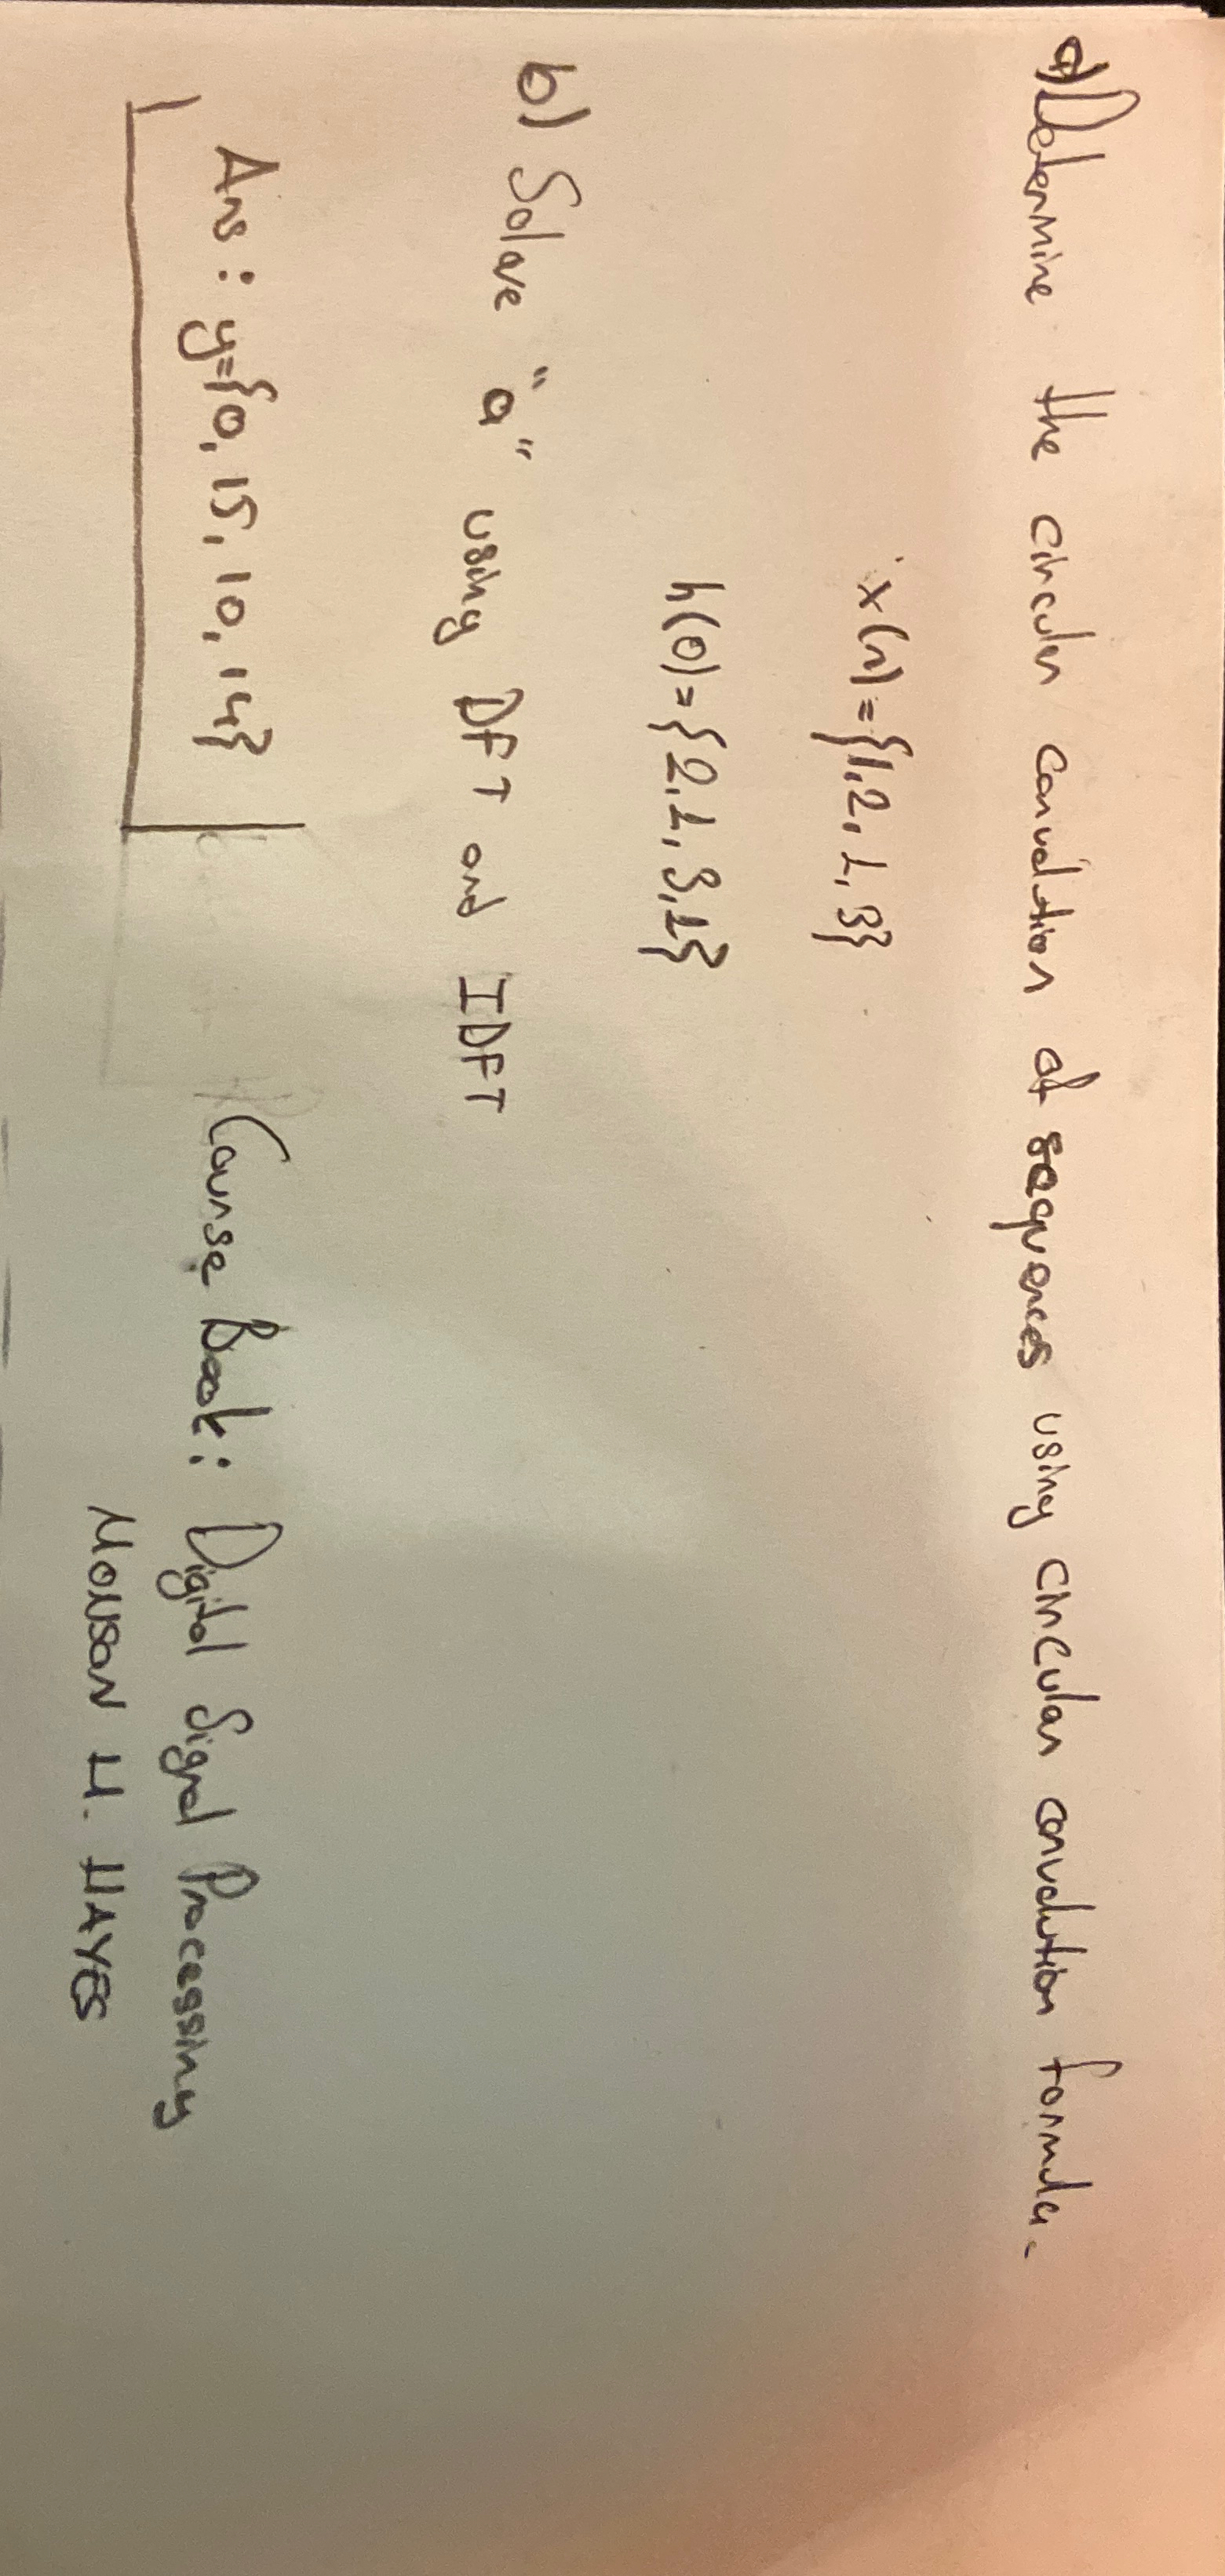 a) Determine the circular convolution of sequences using circular convolution formula.
x(n) = {1, 2, 1, 3}
h(0) = {2, 1, 3, 1}
b) Solve "a" using DFT and IDFT
Ans : y={0, 15, 10, 14}
Course Book : Digital Signal Processing
MONSON H. HAYES